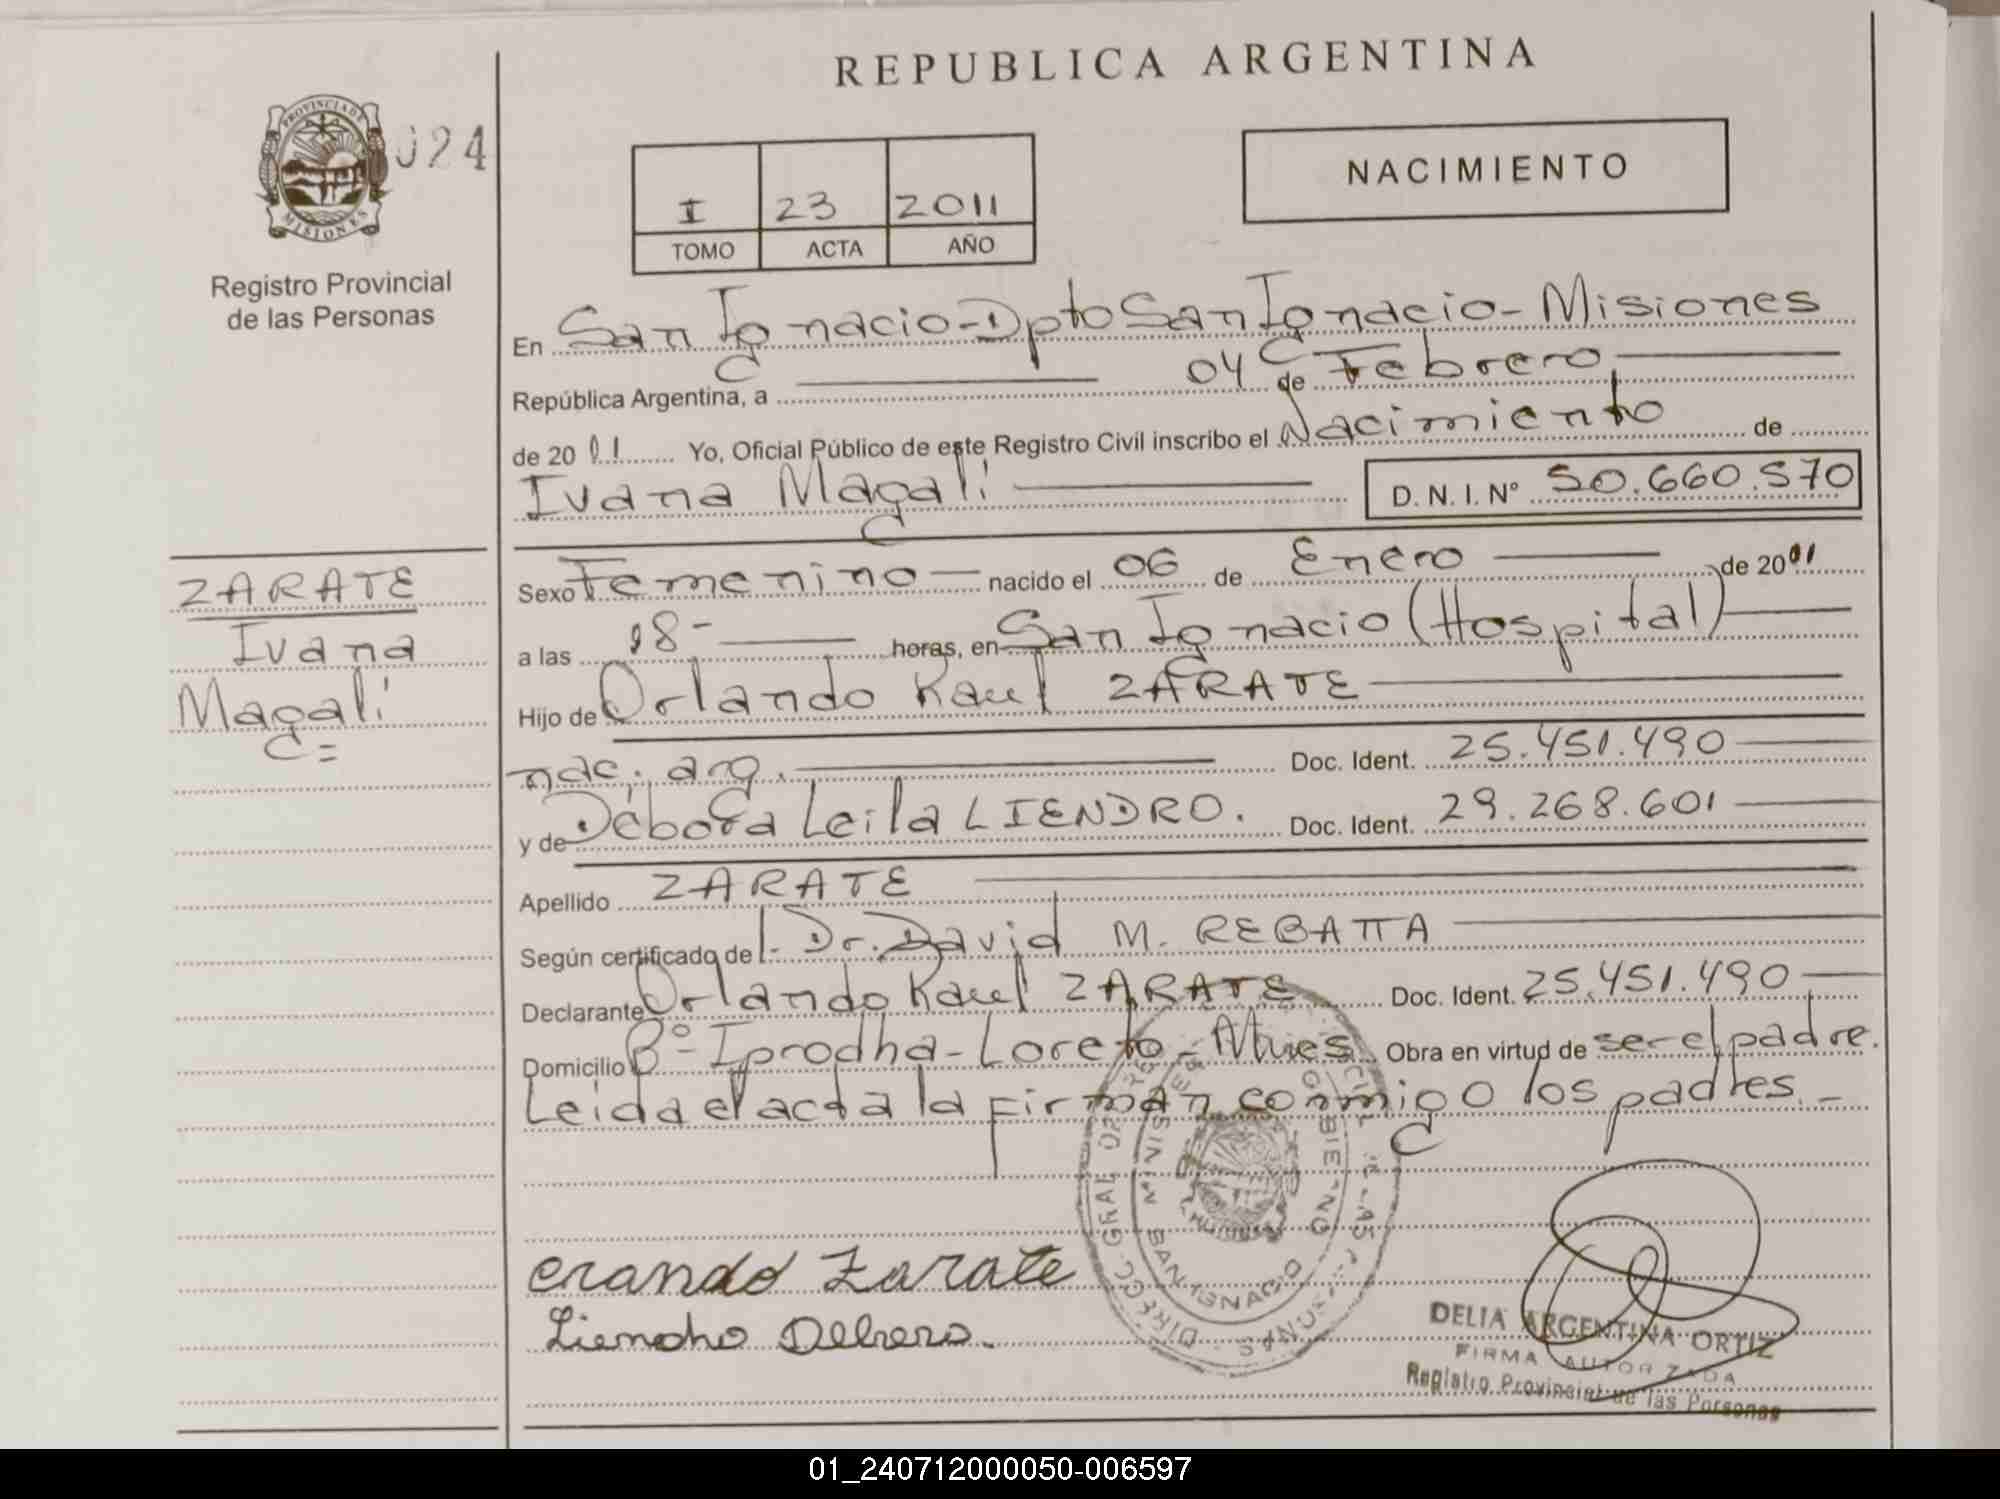 REPUBLICA ARGENTINA
PROVINCIA DE
MISIONES
024
Registro Provincial
de las Personas
I 23 2011
TOMO ACTA AÑO
NACIMIENTO
En San Ignacio-Dpto San Ignacio-Misiones
República Argentina, a 04 de Febrero
de 20 11 Yo, Oficial Público de este Registro Civil inscribo el Nacimiento de
Ivana Magalí D. N. I. Nº 50.660.570
ZARATE
Ivana
Magalí =
Sexo Femenino nacido el 06 de Enero de 20 11
a las 18- horas, en San Ignacio (Hospital)
Hijo de Orlando Raul ZARATE
nac. arg. Doc. Ident. 25.451.490
y de Débora Leila LIENDRO. Doc. Ident. 29.268.601
Apellido ZARATE
Según certificado de l. Dr. David M. REBATTA
Declarante Orlando Raul ZARATE Doc. Ident. 25.451.490
Domicilio Bº- Iprodha-Loreto-Mnes Obra en virtud de ser el padre.
Leida el acta la firman conmigo los padres.-
Zarate
DIRECC. GRAL. DE LAS PERSONAS
SAN IGNACIO
DELIA ARGENTINA ORTIZ
FIRMA AUTORIZADA
Registro Provincial de las Personas
01_240712000050-006597